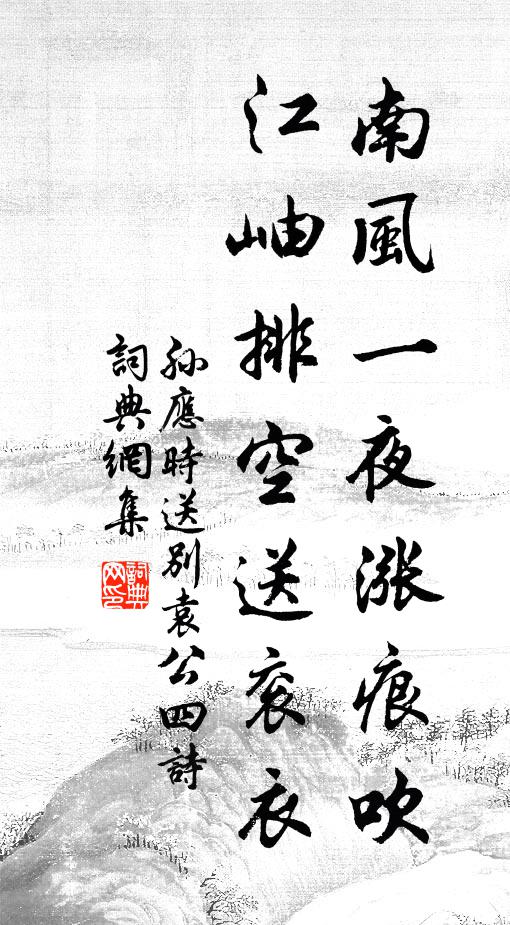 南風一夜漲痕吹
江岫排空送袞衣
孫應時送別袁公四詩
詞典網集
詞典网印